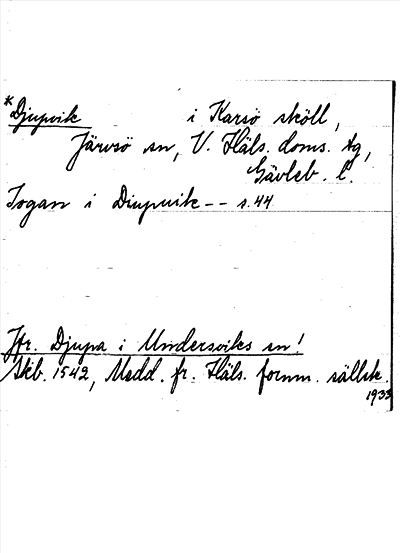 *Djupvik i Karsö sköll,
Järvsö sn, V. Häls. doms. tg,
Gävleb. l.
Togan i Diupuik -- s. 44
Jfr. Djupa i Undersviks sn!
Skb. 1542, Medd. fr. Häls. fornm. sällsk.
1933